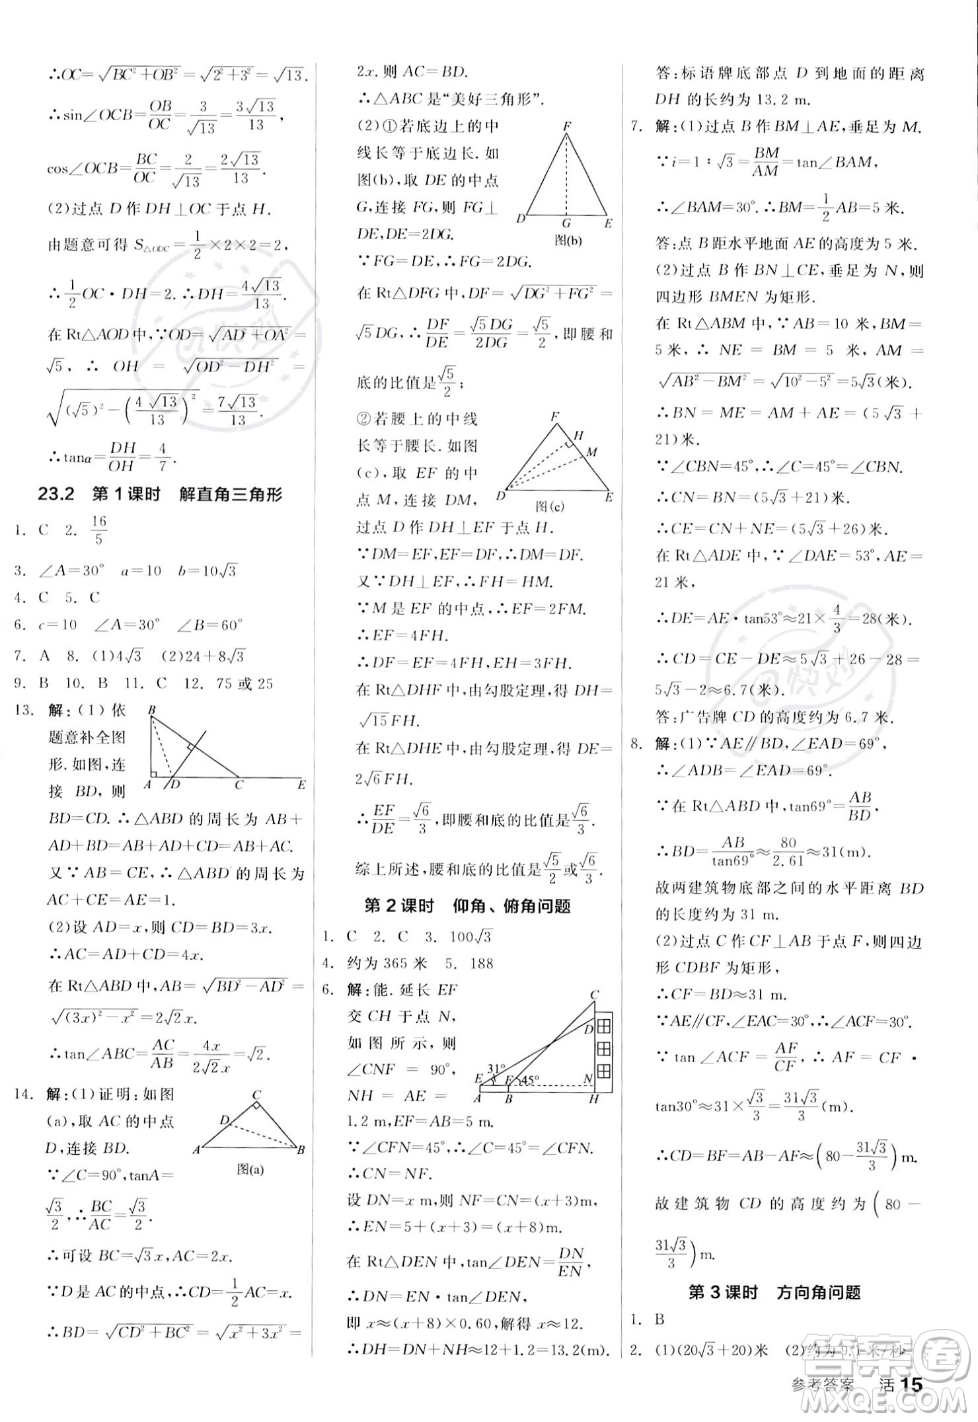 ∴OC=√(BC²+OB²)=√(2²+3²)=√13.
∴sin∠OCB=OB/OC=3/√13=3√13/13,
cos∠OCB=BC/OC=2/√13=2√13/13.
(2)过点 D 作 DH⊥OC 于点 H.
由题意可得 S△ODC=1/2×2×2=2.
∴1/2 OC·DH=2.∴DH=4√13/13.
在 Rt△AOD 中,∵OD=√(AD²+OA²)=
√5,∴OH=√(OD²-DH²)=
√((√5)²-(4√13/13)²)=7√13/13.
∴tanα=DH/OH=4/7.
23.2 第1课时 解直角三角形
1. C 2. 16/5
3. ∠A=30° a=10 b=10√3
4. C 5. C
6. c=10 ∠A=30° ∠B=60°
7. A 8. (1)4√3 (2)24+8√3
9. B 10. B 11. C 12. 75 或 25
13. 解:(1)依
题意补全图
形.如图,连
接 BD,则
BD=CD.∴△ABD 的周长为 AB+
AD+BD=AB+AD+CD=AB+AC.
又∵AB=CE,∴△ABD 的周长为
AC+CE=AE=1.
(2)设 AD=x,则 BD=CD=3x.
∴AC=AD+CD=4x.
在 Rt△ABD 中,AB=√(BD²-AD²)=
√((3x)²-x²)=2√2x.
∴tan∠ABC=AC/AB=4x/(2√2x)=√2.
14. 解:(1)证明:如图
(a),取 AC 的中点
D,连接 BD.
∵∠C=90°,tanA=
√3/2,∴BC/AC=√3/2.
∴可设 BC=√3x,AC=2x.
∵D 是 AC 的中点,∴CD=1/2AC=x.
∴BD=√(CD²+BC²)=√(x²+3x²)=
B
A D C E
C
D
A B
图(a)
2x.则 AC=BD.
∴△ABC 是“美好三角形”.
(2)①若底边上的中
线长等于底边长.如
图(b),取 DE 的中点
G,连接 FG,则 FG⊥
DE,FG=DE.
∵FG=DE,∴FG=2DG.
在 Rt△DFG 中,DF=√(DG²+FG²)=
√5DG,∴DF/DE=√5DG/2DG=√5/2,即腰和
底的比值是√5/2;
②若腰上的中线
长等于腰长.如图
(c),取 EF 的中
点 M,连接 DM,
过点 D 作 DH⊥EF 于点 H.
∵DM=EF,∴DM=DF.
又∵DH⊥EF,∴FH=HM.
又∵M 是 EF 的中点,∴EF=2FM.
∴EF=4FH.
∴DF=4FH,HE=3FH.
在 Rt△DHF 中,由勾股定理,得 DH=
√15FH.
在 Rt△DHE 中,由勾股定理,得 DE=
2√6FH.
∴EF/DE=√6/3,即腰和底的比值是√6/3.
综上所述,腰和底的比值是√5/2或√6/3.
F
D G E
图(b)
F
H
M
D E
图(c)
第2课时 仰角、俯角问题
1. C 2. C 3. 100√3
4. 约为 365 米 5. 188
6. 解:能.延长 EF
交 CH 于点 N,
如图所示,则
∠CNF=90°,
NH=AE=
1.2 m,EF=AB=5 m.
∵∠CNF=45°,∴∠CFN=45°=∠CFN.
∴CN=NF.
设 DN=x m,则 NF=CN=(x+3)m.
∴EN=5+(x+3)=(x+8)m.
在 Rt△DEN 中,tan∠DEN=DN/EN,
∴DN=EN·tan∠DEN.
即 x≈(x+8)×0.60,解得x≈12.
∴DH=DN+NH≈12+1.2=13.2(m).
C
D
E 31° F 45° N
A B H
答:标语牌底部点 D 到地面的距离
DH 的长约为 13.2 m.
7. 解:(1)过点 B 作 BM⊥AE,垂足为 M.
∵i=1∶√3=BM/AM=tan∠BAM,
∴∠BAM=30°.∴BM=1/2AB=5 米.
答:点 B 距水平地面 AE 的高度为 5 米.
(2)过点 B 作 BN⊥CE,垂足为 N,则
四边形 BMEN 为矩形.
在 Rt△ABM 中,∵AB=10 米,BM=
5 米,∴NE=BM=5 米,AM=
√(AB²-BM²)=√(10²-5²)=5√3(米).
∴BN=ME=AM+AE=(5√3+
21)米.
∵∠CBN=45°,∴CN=BN.
∴CE=CN+NE=(5√3+26)米.
在 Rt△ADE 中,∵∠DAE=53°,AE=
21 米,
∴DE=AE·tan53°≈21×4/3=28(米).
∴CD=CE-DE≈5√3+26-28=
5√3-2≈6.7(米).
答:广告牌 CD 的高度约为 6.7 米.
8. 解:(1)∵AE∥BD,∠EAD=69°,
∴∠ADB=∠EAD=69°.
∵在 Rt△ABD 中,tan69°=AB/BD,
∴BD=AB/tan69°≈80/2.61≈31(m).
故两建筑物底部之间的水平距离 BD
的长度约为 31 m.
(2)过点 C 作 CF⊥AB 于点 F,则四边
形 CDBF 为矩形.
∴CF=BD≈31 m.
∵AE∥CF,∴∠ACF=∠EAC=30°.
∵tan∠ACF=AF/CF,∴AF=CF·
tan30°≈31×√3/3=31√3/3(m).
∴CD=BF=AB-AF≈(80-31√3/3)m.
故建筑物 CD 的高度约为(80-
31√3/3)m.
第3课时 方向角问题
1. B
2. (1)(20√3+20)米 (2)约为
参考答案 活 15